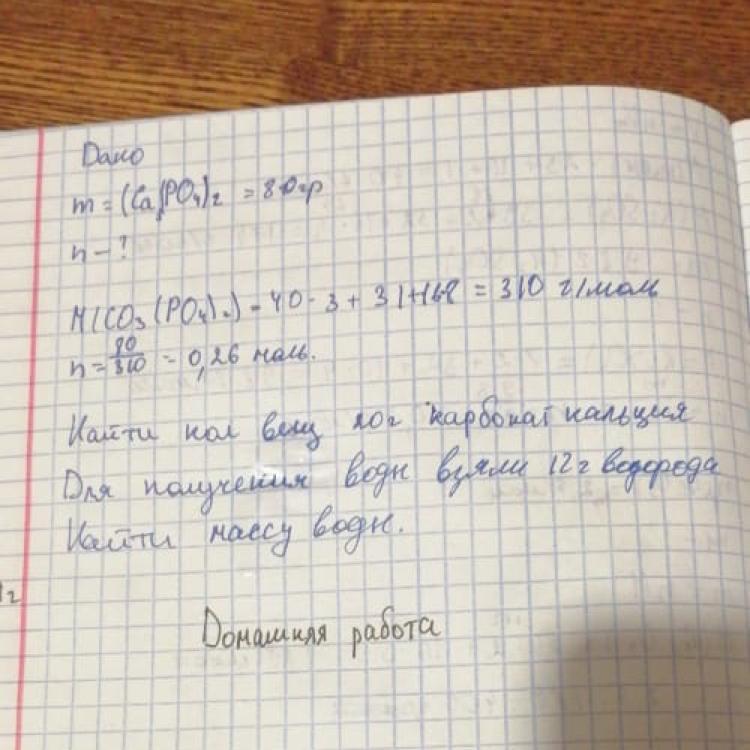 Дано
m = (Ca₃(PO₄)₂ = 80гр
n - ?
M(CO₃(PO₄)₂) = 40 · 3 + 31+168 = 310 г/моль
n = 80/310 = 0,26 моль.
Найти кол вещ 20г карбонат кальция
Для получения воды взяли 12г водорода
Найти массу воды.
Домашняя работа